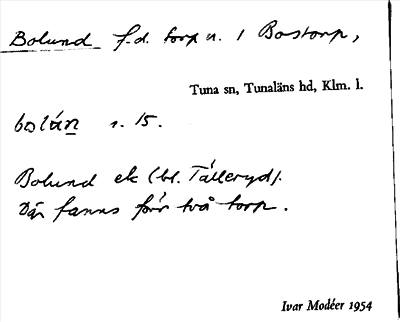 Bolund f.d. torp u. 1 Bostorp,
Tuna sn, Tunaläns hd, Klm. l.
bolán s. 15.
Bolund ek (bl. Tålleryd).
Där fanns förr två torp.
Ivar Modéer 1954